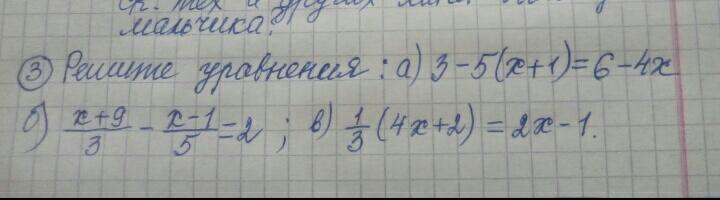 мальчика.
③ Решите уравнения: а) 3-5(x+1)=6-4x
б) \frac{x+9}{3} - \frac{x-1}{5} = 2; в) \frac{1}{3}(4x+2) = 2x-1.